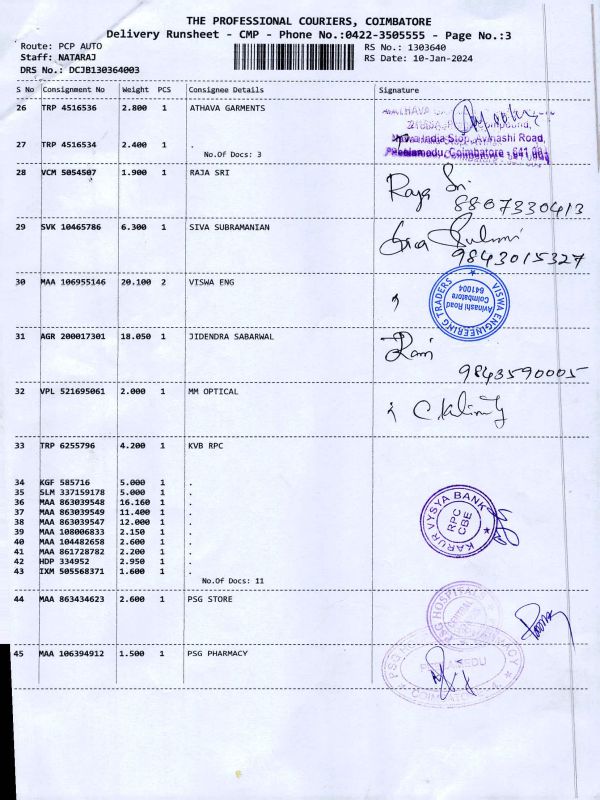 THE PROFESSIONAL COURIERS, COIMBATORE
Delivery Runsheet - CMP - Phone No.:0422-3505555 - Page No.:3
Route: PCP AUTO
Staff: NATARAJ
DRS No.: DCJB130364003
RS No.: 1303640
RS Date: 10-Jan-2024
S No Consignment No Weight PCS Consignee Details Signature
26 TRP 4516536 2.800 1 ATHAVA GARMENTS
27 TRP 4516534 2.400 1 .
No.Of Docs: 3
Avinashi Road,
Coimbatore
28 VCM 5054507 1.900 1 RAJA SRI
Raja Sri
8807330413
29 SVK 10465786 6.300 1 SIVA SUBRAMANIAN
9843015327
30 MAA 106955146 20.100 2 VISWA ENG
VISWA ENGINEERING TRADERS
Avinashi Road
Coimbatore
641004
31 AGR 200017301 18.050 1 JIDENDRA SABARWAL
Ravi
9843590005
32 VPL 521695061 2.000 1 MM OPTICAL
33 TRP 6255796 4.200 1 KVB RPC
34 KGF 585716 5.000 1 .
35 SLM 337159178 5.000 1 .
36 MAA 863039548 16.160 1 .
37 MAA 863039549 11.400 1 .
38 MAA 863039547 12.000 1 .
39 MAA 108006833 2.150 1 .
40 MAA 104482658 2.600 1 .
41 MAA 861728782 2.200 1 .
42 HDP 334952 2.950 1 .
43 IXM 505568371 1.600 1 .
No.Of Docs: 11
KARUR VYSYA BANK
RPC
CBE
44 MAA 863434623 2.600 1 PSG STORE
PSG HOSPITALS
45 MAA 106394912 1.500 1 PSG PHARMACY